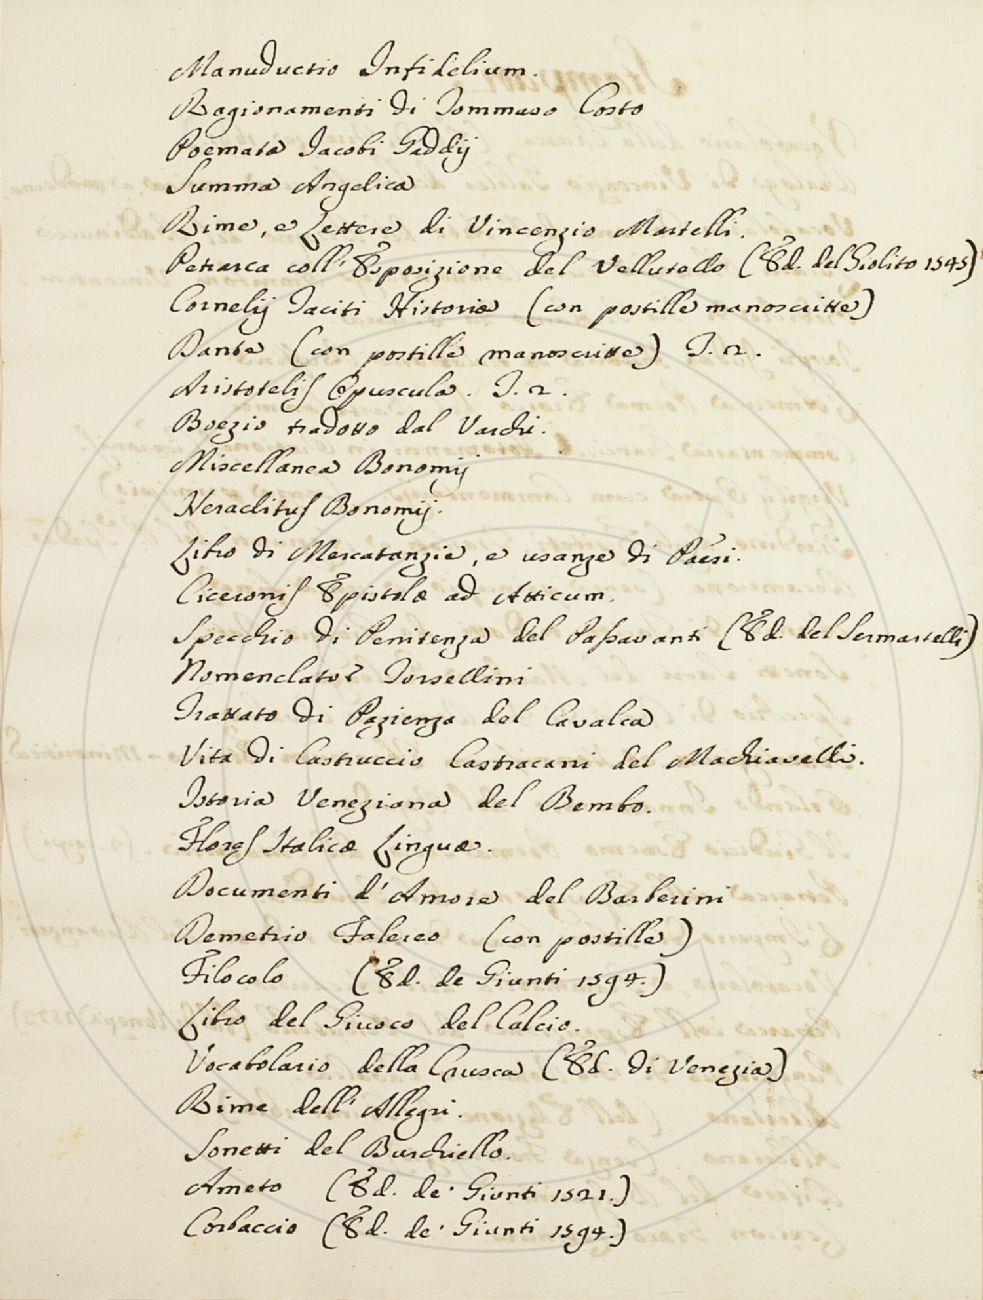 Manuductio Infidelium.
Ragionamenti di Tommaso Costo
Poemata Jacobi Gaddij
Summa Angelica
Rime, e Lettere di Vincenzio Martelli.
Petrarca coll' Esposizione del Vellutello (Ed. del Giolito 1545)
Cornelij Taciti Historia (con postille manoscritte)
Dante (con postille manoscritte) T. 2.
Aristotelis Opuscula. T. 2.
Boezio tradotto dal Varchi.
Miscellanea Bonomij
Heraclitus Bonomij.
Libro di Mercatanzie, e usanze di Paesi.
Ciceronis Epistolæ ad Atticum.
Specchio di Penitenza del Passavanti (Ed. del Sermartelli)
Nomenclator Torsellini
Trattato di Pazienza del Cavalca
Vita di Castruccio Castracani del Machiavelli.
Istoria Veneziana del Bembo.
Flores Italicæ Linguæ.
Documenti d'Amore del Barberini
Demetrio Falereo (con postille)
Filocolo (Ed. de Giunti 1594.)
Libro del Giuoco del Calcio.
Vocabolario della Crusca (Ed. di Venezia)
Rime dell' Allegri.
Sonetti del Burchiello.
Ameto (Ed. de' Giunti 1521.)
Corbaccio (Ed. de' Giunti 1594.)